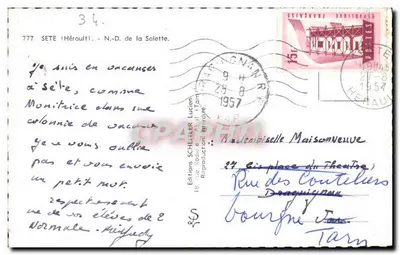 34.
777 SETE (Hérault). - N.-D. de la Salette.
Je suis en vacances
à Sète, comme
Monitrice dans une
colonie de vacances
Je ne vous oublie
pas et vous envoie
un petit mot.
respectueusement
une de vos élèves de 2
Normale.
Editions SCHLEILER Lucien
Reproduction interdite
9 H
29-8
1957
15F
POSTES
FRANÇAISE
1957
HERAULT
Mademoiselle Maisonneuve
27 place du Théatre
Rue des Couteliers
Draguignan
bourgne Tarn
Tarn